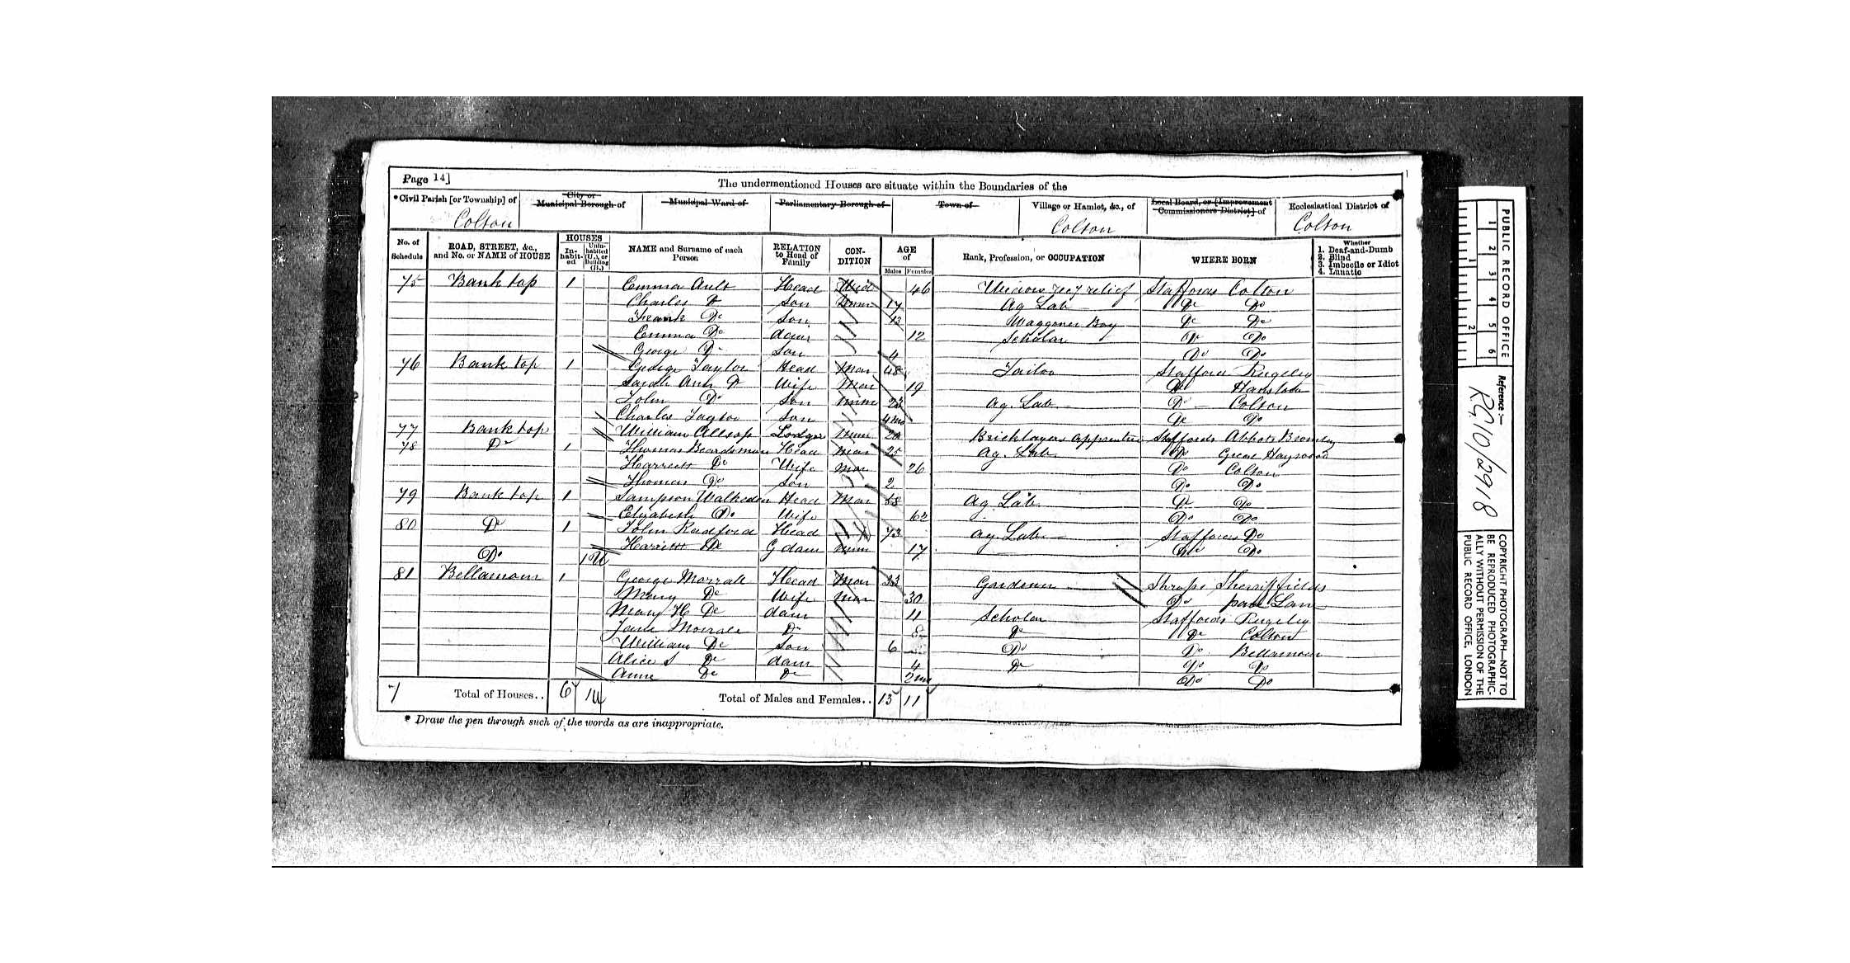 Page 14]
The undermentioned Houses are situate within the Boundaries of the
*Civil Parish [or Township] of
Colton
City or Municipal Borough of
Municipal Ward of
Parliamentary Borough of
Town of
Village or Hamlet, &c., of
Colton
Local Board, or [Improvement Commissioners District] of
Ecclesiastical District of
Colton
No. of Schedule
ROAD, STREET, &c., and No. or NAME of HOUSE
HOUSES
In-habit-ed
Unin-habited (U.), or Building (B.)
NAME and Surname of each Person
RELATION to Head of Family
CON-DITION
AGE of
Males Females
Rank, Profession, or OCCUPATION
WHERE BORN
Whether
1. Deaf-and-Dumb
2. Blind
3. Imbecile or Idiot
4. Lunatic
75 Bank top 1 Emma Ault Head 46 relief Staffords Colton
Charles Do Son 17 Ag Lab Do Do
Frank Do Son 13 Waggoner Boy Do Do
Emma Do daur 12 Scholar Do Do
George Do Son 4 Do Do
76 Bank top 1 George Taylor Head Mar 48 Tailor Stafford Rugeley
Sarah Ann Do Wife Mar 19 Do
John Do Son Unm 23 Ag. Lab Do Colton
Charles Taylor Son 4 mo Do Do
77 Bank top William Allsop Lodger Unm 20 Bricklayers Apprentice Staffords Abbots Bromley
78 Do 1 Thomas Boardsman Head Mar 25 Ag. Lab Do Great Haywood
Harriett Do Wife Mar 26 Do Colton
Thomas Do Son 2 Do Do
79 Bank top 1 Sampson Walkeden Head Mar 68 Ag Lab Do Do
Elizabeth Do Wife 62 Do Do
80 Do 1 John Radford Head 73 Ag Lab Staffords Do
Harriett Do G daur Unm 17 Do Do
Do 1U
81 Bellamour 1 George Morrall Head Mar 33 Gardener Shrops Sheriffields
Mary Do Wife Mar 30 Do
Mary H Do daur 11 Scholar Staffords Rugeley
Jane Morrall Do 8 Do Do Colton
William Do Son 6 Do Do Bellamour
Alice S Do daur 4 Do Do Do
Anne Do Do 2 mo Do Do
7 Total of Houses.. 6 1U Total of Males and Females.. 15 11
* Draw the pen through such of the words as are inappropriate.
PUBLIC RECORD OFFICE
1 2 3 4 5 6
1 2
Reference :-
RG10/2918
COPYRIGHT PHOTOGRAPH—NOT TO BE REPRODUCED PHOTOGRAPHIC-ALLY WITHOUT PERMISSION OF THE PUBLIC RECORD OFFICE, LONDON